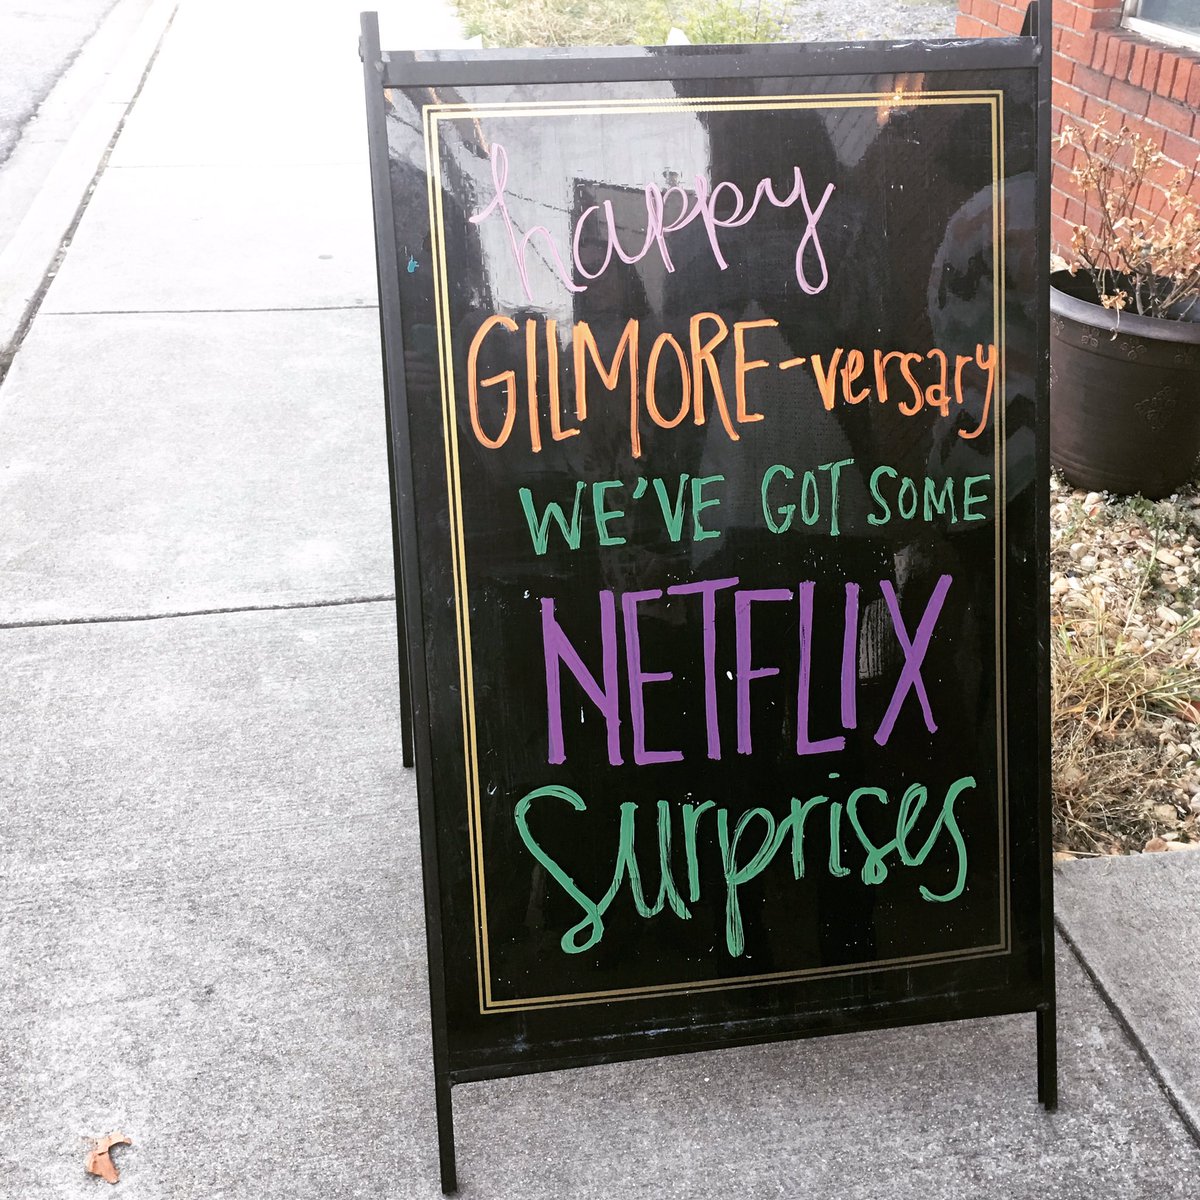 happy
GILMORE-versary
WE'VE GOT SOME
NETFLIX
Surprises